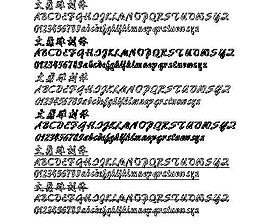 ABCDEFGHIJKLMNOPQRSTUVWXYZ
0123456789abcdefghijklmnopqrstuvwxyz
ABCDEFGHIJKLMNOPQRSTUVWXYZ
0123456789abcdefghijklmnopqrstuvwxyz
ABCDEFGHIJKLMNOPQRSTUVWXYZ
0123456789abcdefghijklmnopqrstuvwxyz
ABCDEFGHIJKLMNOPQRSTUVWXYZ
0123456789abcdefghijklmnopqrstuvwxyz
ABCDEFGHIJKLMNOPQRSTUVWXYZ
0123456789abcdefghijklmnopqrstuvwxyz
ABCDEFGHIJKLMNOPQRSTUVWXYZ
0123456789abcdefghijklmnopqrstuvwxyz